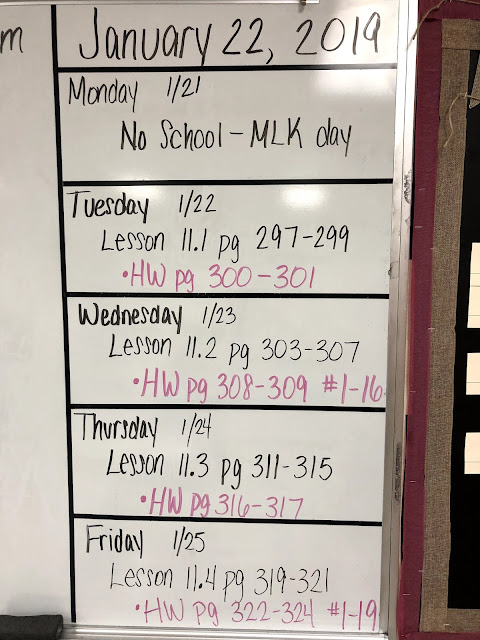 m
January 22, 2019
Monday 1/21
No School - MLK day
Tuesday 1/22
Lesson 11.1 pg 297-299
•HW pg 300-301
Wednesday 1/23
Lesson 11.2 pg 303-307
•HW pg 308-309 #1-16
Thursday 1/24
Lesson 11.3 pg 311-315
•HW pg 316-317
Friday 1/25
Lesson 11.4 pg 319-321
•HW pg 322-324 #1-19